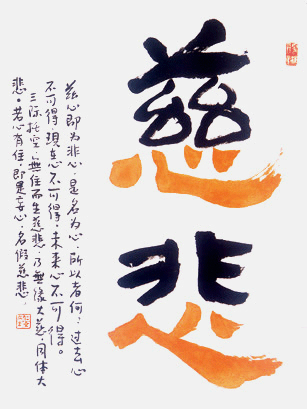 慈悲
兹心即为非心。是名为心。所以者何：过去心
不可得。現在心不可得。未来心不可得。
三际托空。無住而生慈悲。乃無缘大慈。同体大
悲。若心有住。即是妄心。名假慈悲。